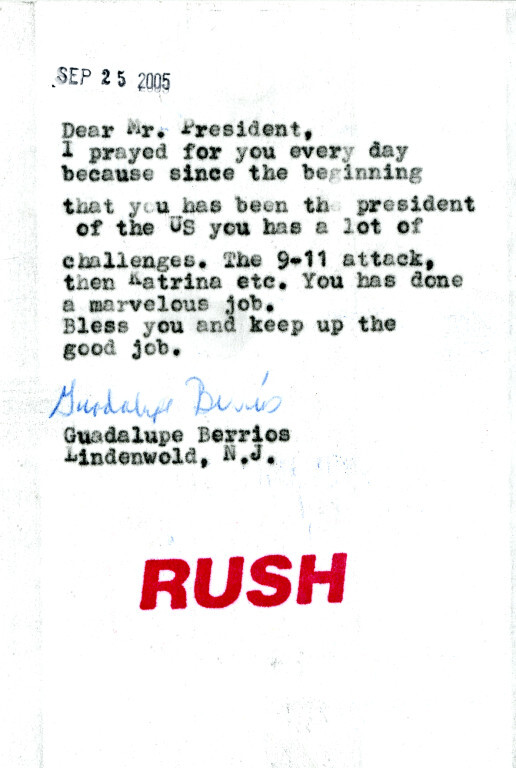 SEP 25 2005
Dear Mr. President,
I prayed for you every day
because since the beginning
that you has been the president
of the US you has a lot of
challenges. The 9-11 attack,
then Katrina etc. You has done
a marvelous job.
Bless you and keep up the
good job.
Guadalupe Berrios
Guadalupe Berrios
Lindenwold, N.J.
RUSH